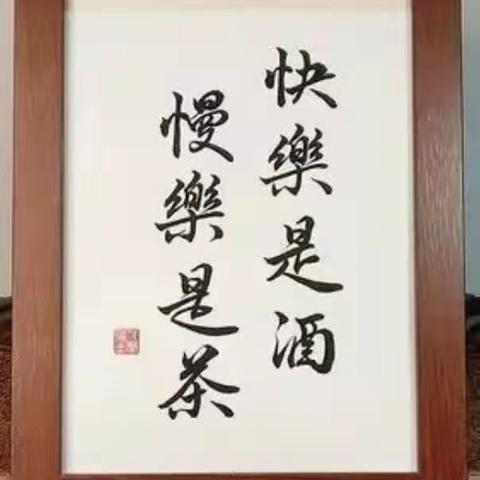 快樂是酒
慢樂是茶